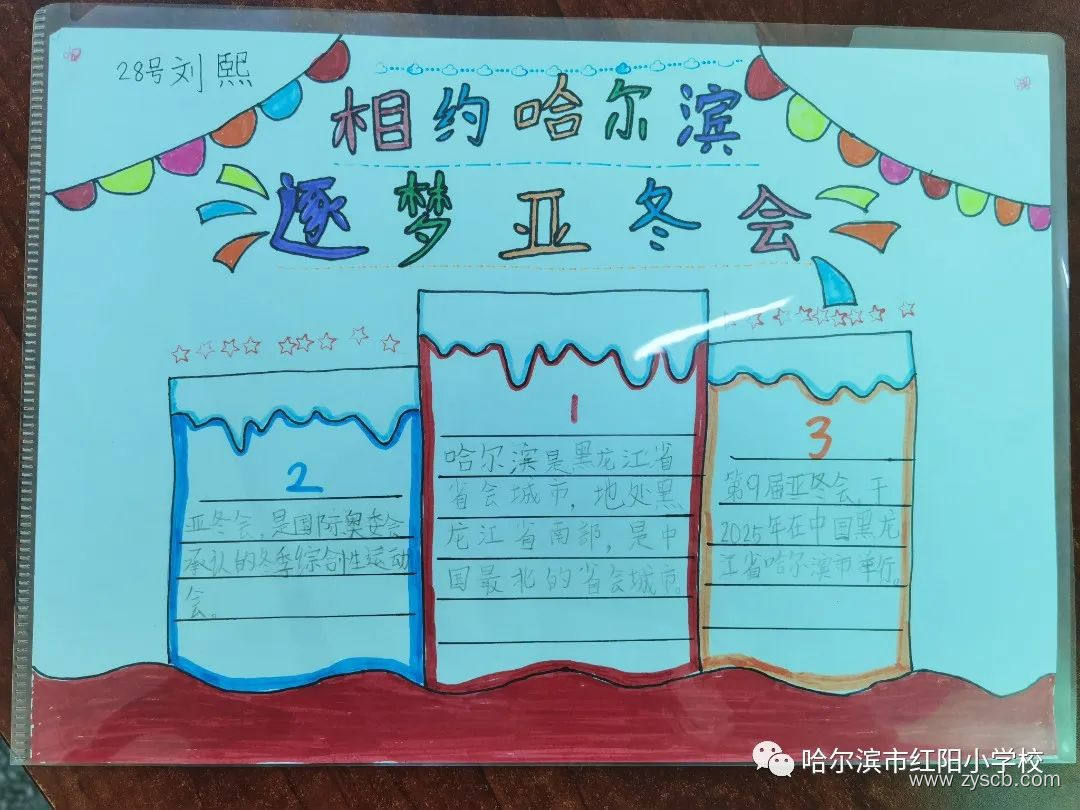 28号刘熙
相约哈尔滨
逐梦亚冬会
2
亚冬会,是国际奥委会
承认的冬季综合性运动
会。
1
哈尔滨是黑龙江省
省会城市,地处黑
龙江省南部,是中
国最北的省会城市。
3
第9届亚冬会,于
2025年在中国黑龙
江省哈尔滨市举行。
哈尔滨市红阳小学校
www.zyscb.com